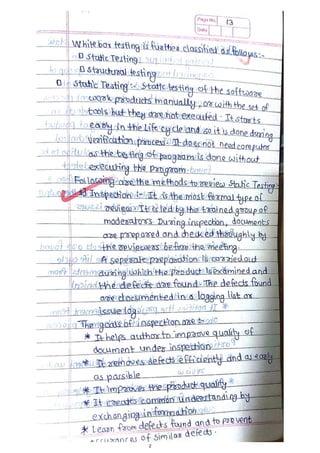 Page No. 13
Date
White box testing is further classified as follows:-
1) Static Testing
2) Structural testing
1) Static Testing :- Static testing of the software
work products manually, or with the set of
tools but they are not executed. It starts
early in the Life cycle and so it is done during
verification process. It does not need computer
as the testing of program is done without
executing the Program.
Following are the methods to review Static Testing-
1) Inspection :- It is the most formal type of
review. It is led by the trained group of
moderators. During inspection, documents
are prepared and checked thoroughly by
the reviewers before the meeting.
A seperate preparation is carried out
during which the product is examined and
the defects are found. The defects found
are documented in a logging list or
issue log.
The goals of inspection are :-
* It helps author to improve quality of
document under inspection
* It removes defects efficiently and as early
as possible
* It improves the product quality
* It creates common understanding by
exchanging information
* Learn from defects found and to prevent
occurances of similar defects.